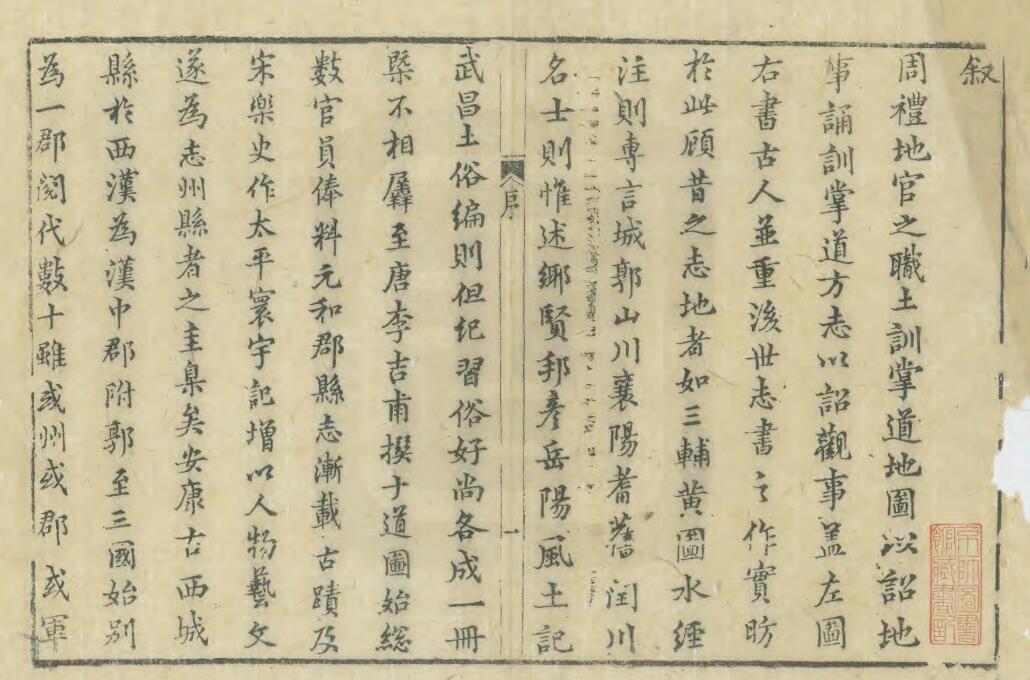 叙
周禮地官之職土訓掌道地圖以詔地
事誦訓掌道方志以詔觀事盖左圖
右書古人並重後世志書之作實昉
於此顧昔之志地者如三輔黄圖水經
注則專言城郭山川襄陽耆舊閏川
名士則惟述鄉賢邦彦岳陽風土記
序
一
武昌土俗编則但纪習俗好尚各成一冊
槩不相羼至唐李吉甫撰十道圖始総
數官員俸料元和郡縣志漸載古蹟及
宋樂史作太平寰宇記增以人物藝文
遂為志州縣者之圭臬矣安康古西城
縣於西漢為漢中郡附郭至三國始别
為一郡閲代數十雖或州或郡或軍
京師圖書館藏書記